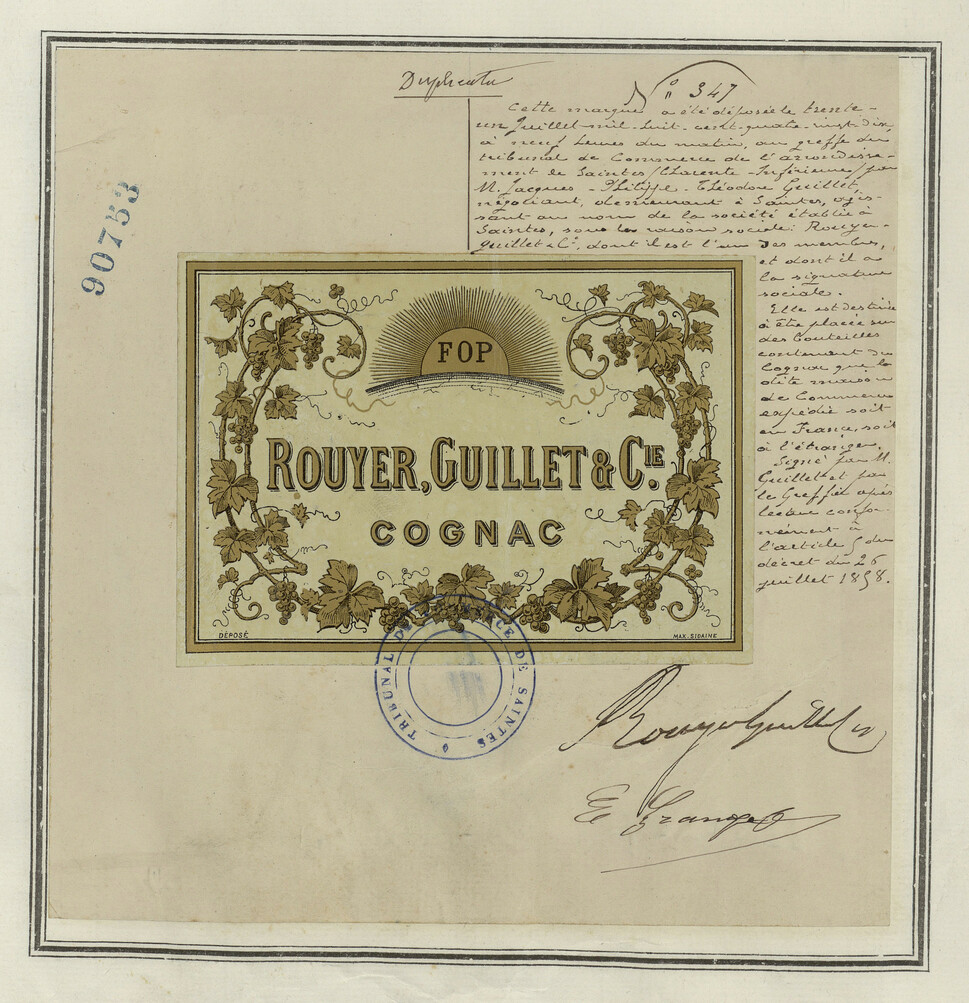 Duplicata
N° 347
Cette marque a été déposée le trente-
un Juillet mil huit-cent-quatre-vingt-dix,
à neuf heures du matin, au greffe du
tribunal de Commerce de l'arrondisse-
ment de Saintes (Charente-Inférieure) par
M. Jacques-Philippe-Théodore Guillet,
négociant, demeurant à Saintes, agis-
sant au nom de la société établie à
Saintes, sous la raison sociale: Rouyer-
guillet & Cie, dont il est l'un des membres,
et dont il a
la signature
sociale.
Elle est destinée
à être placée sur
des bouteilles
contenant du
Cognac que la
dite maison
de Commerce
expédie soit
en France, soit
à l'étranger.
Signé par M.
Guillet et par
le Greffier après
lecture confor-
mément à
l'article 5 du
décret du 26
juillet 1858.
90753
FOP
ROUYER, GUILLET & CIE.
COGNAC
DÉPOSÉ
MAX. SIDAINE
TRIBUNAL DE COMMERCE DE SAINTES
Rouyer Guillet Cie
E Granget